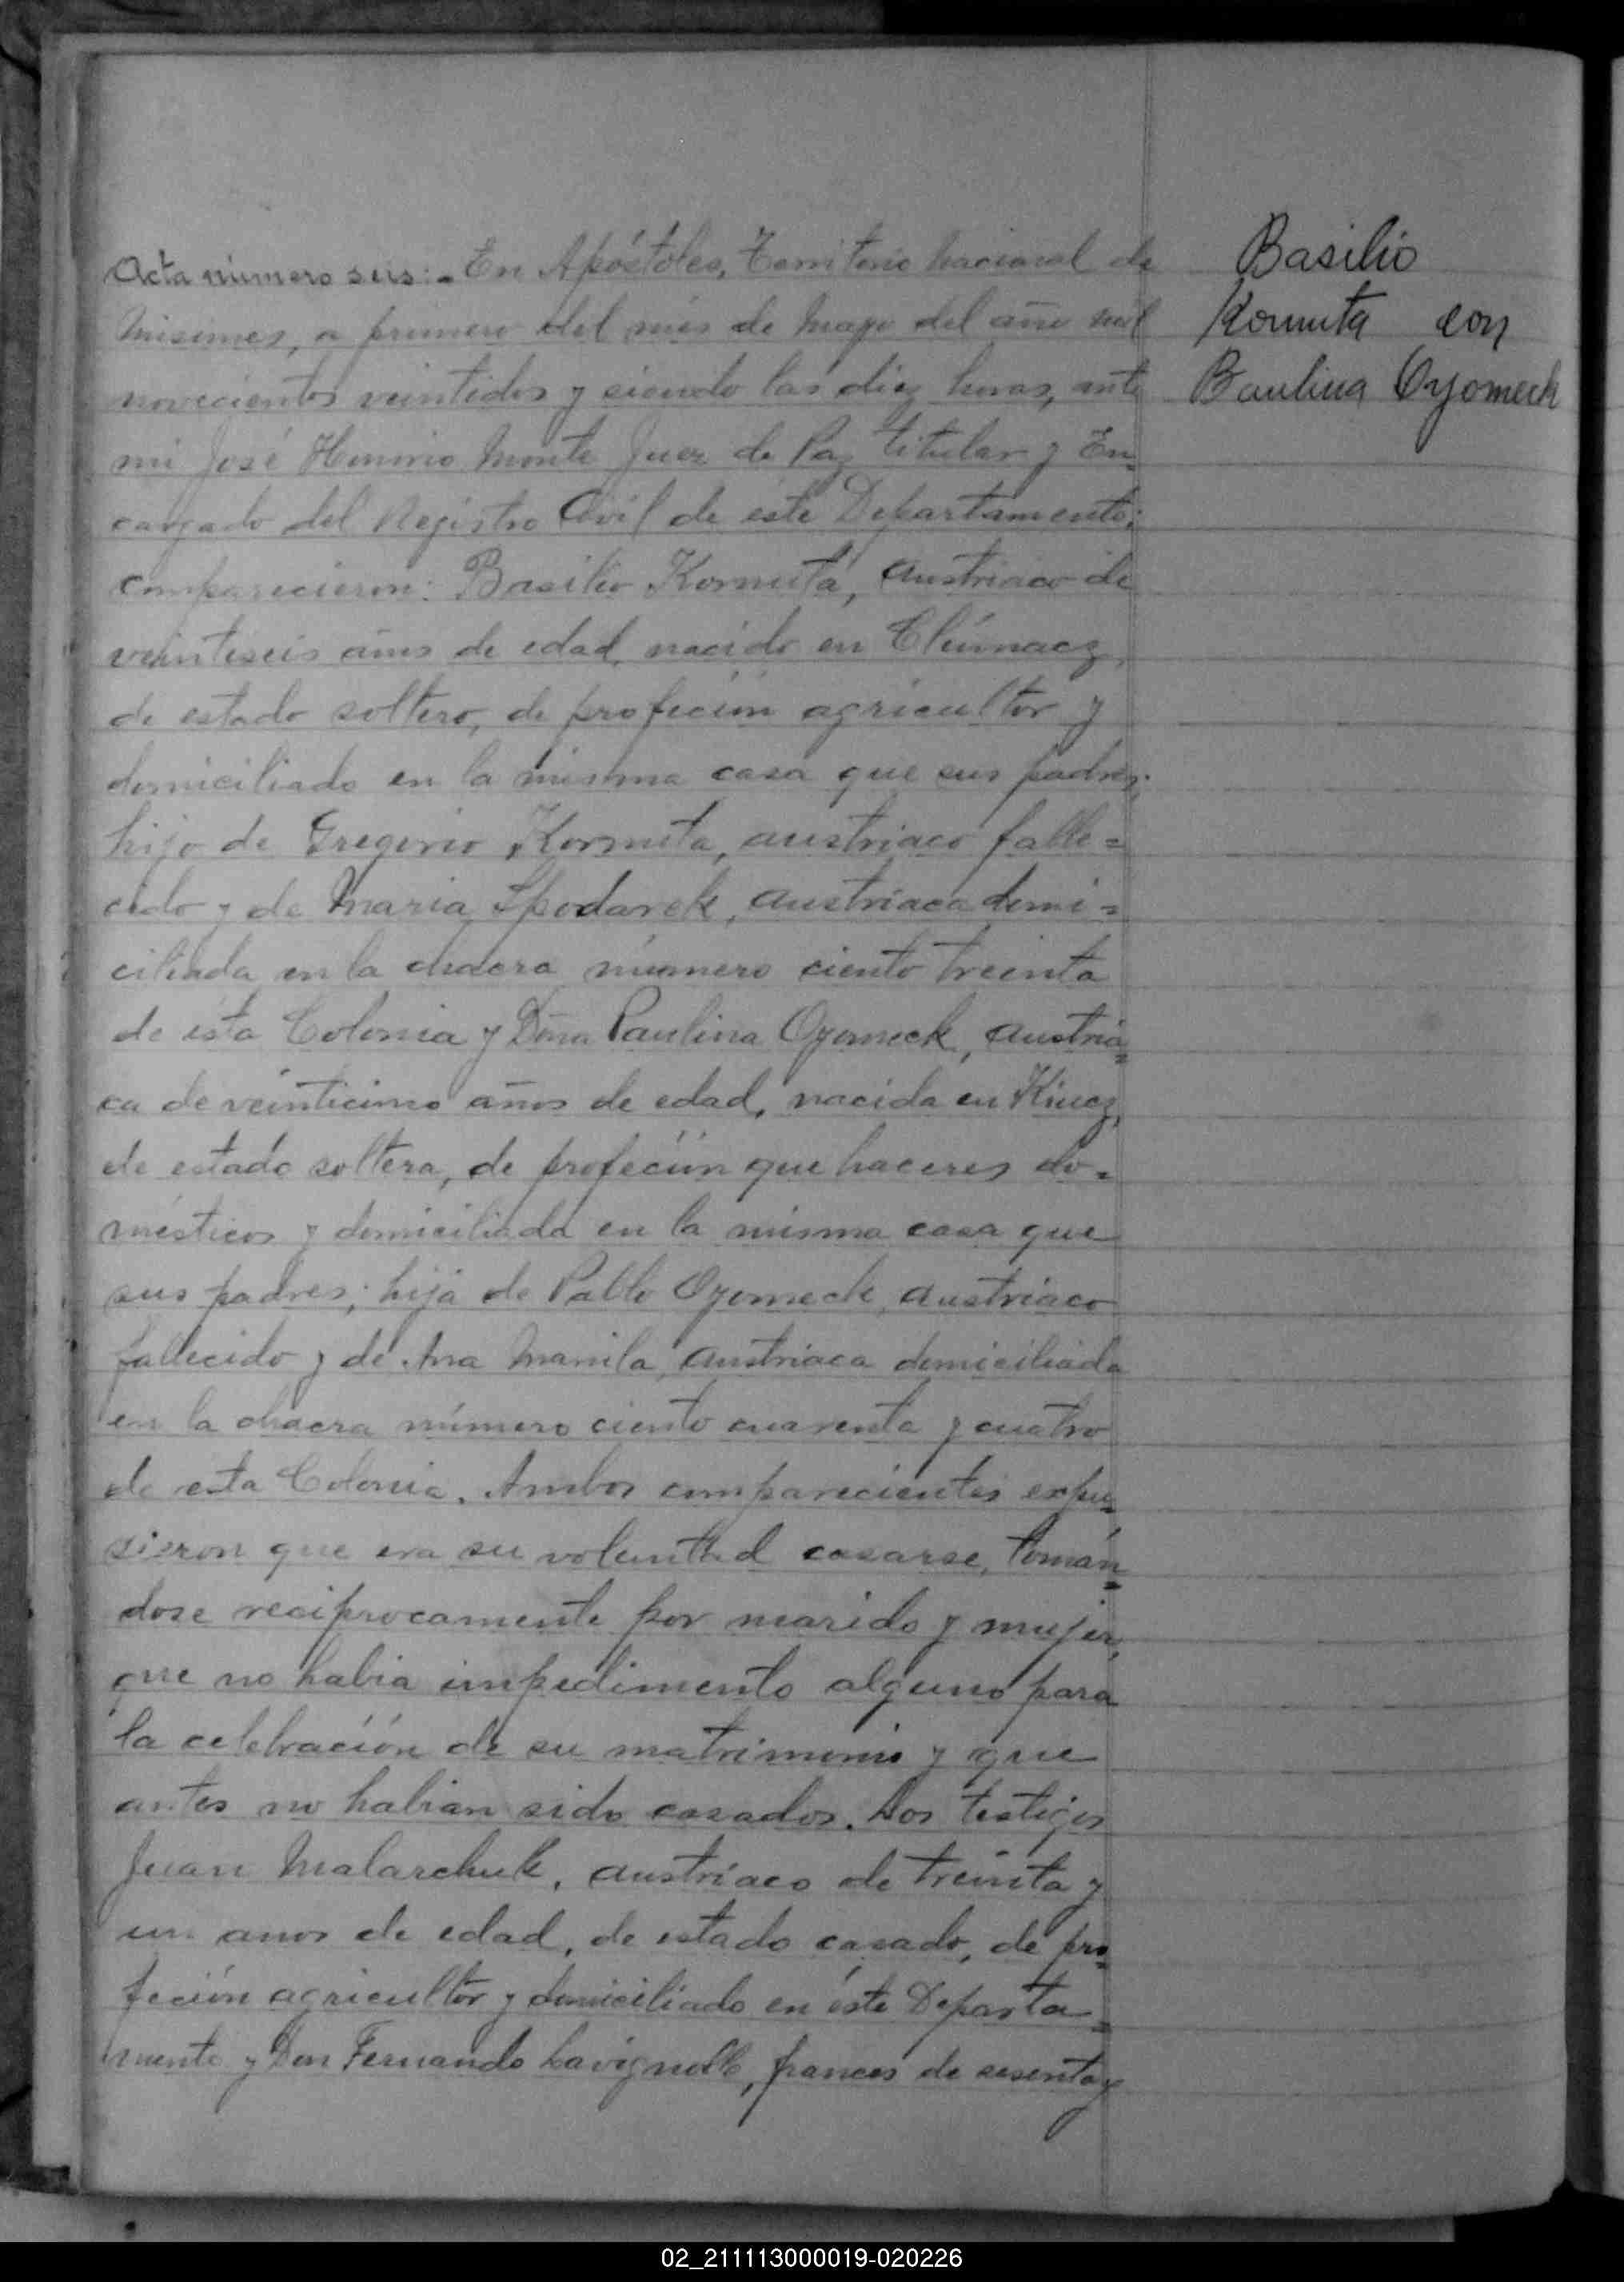 Basilio
Kornuta con
Paulina Oyomeck
Acta número seis:- En Apóstoles, Territorio Nacional de
Misiones, a primero del mes de Mayo del año mil
novecientos veintidos y siendo las diez horas, ante
mi José Monte Juez de Paz titular y En-
cargado del Registro Civil de este Departamento;
comparecieron: Basilio Kornuta, austriaco de
veintiseis años de edad, nacido en Clúmacz,
de estado soltero, de profeción agricultor y
domiciliado en la misma casa que sus padres;
hijo de Gregorio Kornuta, austriaco falle=
cido y de Maria Spodarek, austriaca domi=
ciliada en la chacra número ciento treinta
de esta Colonia y Doña Paulina Oyomeck, austria=
ca de veinticinco años de edad, nacida en
de estado soltera, de profeción que haceres do=
mésticos y domiciliada en la misma casa que
sus padres; hija de Pablo Oyomeck, austriaco
fallecido y de Ana Manila, austriaca domiciliada
en la chacra número ciento cuarenta y cuatro
de esta Colonia. Ambos comparecientes expu=
sieron que era su voluntad casarse, tomán=
dose reciprocamente por marido y mujer,
que no habia impedimento alguno para
la celebración de su matrimonio y que
antes no habian sido casados. Los testigos
Juan Malarchuk, austriaco de treinta y
un anos de edad, de estado casado, de pro=
feción agricultor y domiciliado en éste Departa=
mento y Don Fernando Lavignolle, frances de sesenta y
02_211113000019-020226